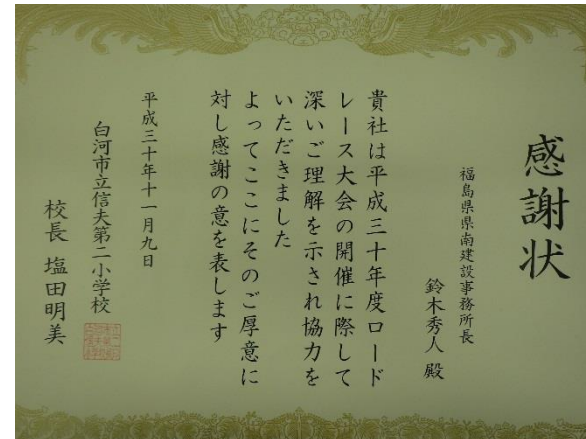 感謝状
福島県県南建設事務所長
鈴木秀人 殿
貴社は平成三十年度ロード
レース大会の開催に際して
深いご理解を示され協力を
いただきました
よってここにそのご厚意に
対し感謝の意を表します
平成三十年十一月九日
白河市立信夫第二小学校
校長 塩田明美